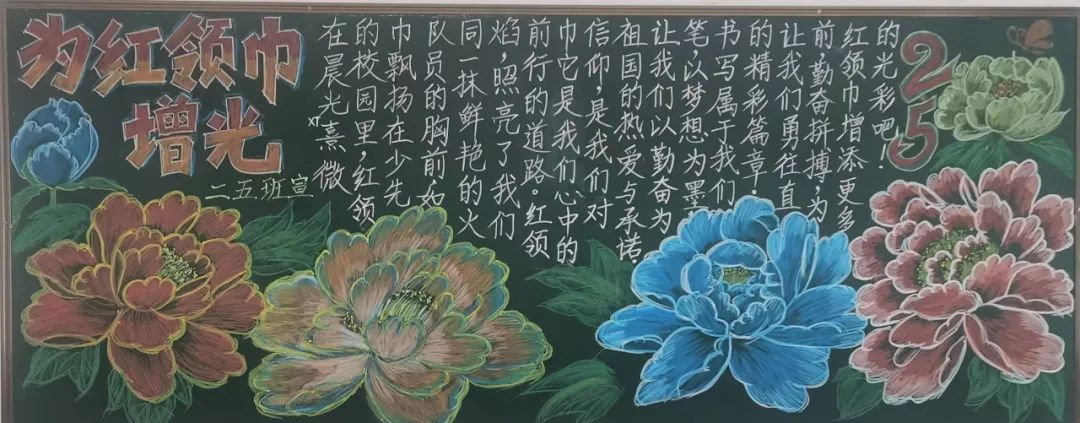 为红领巾
增光
二五班宣
在晨光熹微
的校园里，红领
巾飘扬在少先
队员的胸前，如
同一抹鲜艳的火
焰，照亮了我们
前行的道路。红领
巾它是我们心中的
信仰，是我们对
祖国的热爱与承诺。
让我们以勤奋为
笔，以梦想为墨，
书写属于我们
的精彩篇章。
让我们勇往直
前，勤奋拼搏，为
红领巾增添更多
的光彩吧！
25